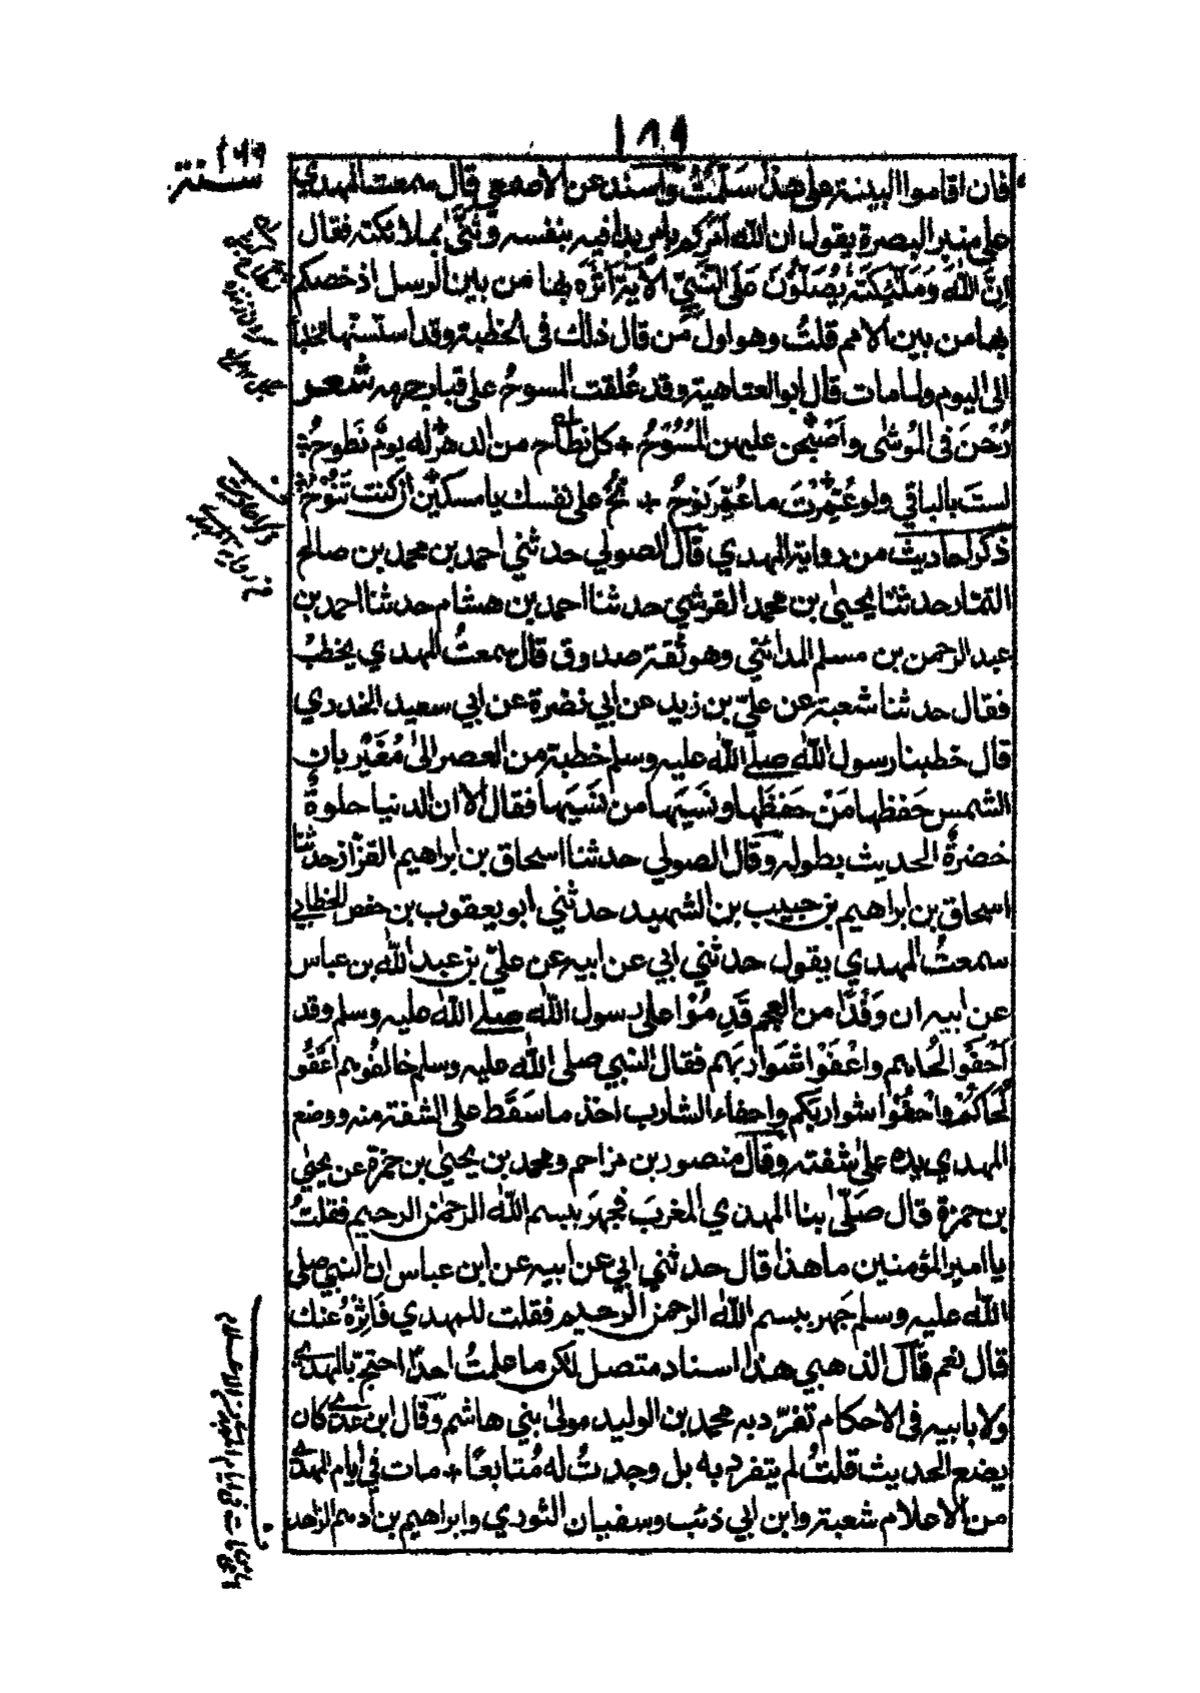 ١٨٩
فان اقاموا البينة على هذا سَلَّمْتُ واسند عن الاصمعي قال سمعت المهدي
على منبر البصرة يقول ان الله امركم بامر بدا فيه بنفسه وثنّى بملائكته فقال
اِنَّ اللّٰهَ وَمَلٰٓئِكَتَہٗ يُصَلُّوْنَ عَلَى النَّبِيِّ الآية اٰثره بها من بين الرسل اذ خصكم
بها من بين الامم قلتُ وهو اول من قال ذلك في الخطبة وقد استسنها الخطباء
الى اليوم ولما مات قال ابو العتاهية وقد عُلقت المسوحُ على قباب حرمه شعـر
رُحْنَ في المُوشى واَصْبحن عليهن المُسُوحُ + كل نطاح من الدهر له يومٌ نَطوحُ
لستَ بالباقي ولو عُمِّرْتَ ما عُمِّرَ نوحُ + نُحْ على نفسك يا مسكين ان كنت تَنُوْحُ
ذكر احاديث من رواية المهدي قال الصولي حدثني احمد بن محمد بن صالح
التمار حدثنا يحيى بن محمد القرشي حدثنا احمد بن هشام حدثنا احمد بن
عبد الرحمن بن مسلم المدائني وهو ثقة صدوق قال سمعتُ المهدي يخطبُ
فقال حدثنا شعبة عن عليّ بن زيد عن ابي نضرة عن ابي سعيد الخدري
قال خطبنا رسول الله صلى الله عليه وسلم خطبة من العصر الى مُغَيْربان
الشمس حَفظها مَنْ حَفِظَها ونَسِيَها من نَسِيَها فقال الا ان الدنيا حلوةٌ
خضرةٌ الحديث بطوله وقال الصولي حدثنا اسحاق بن ابراهيم القزاز حدثنا
اسحاق بن ابراهيم بن حبيب بن الشهيد حدثني ابو يعقوب بن حفص الخطابي
سمعتُ المهدي يقول حدثني ابي عن ابيه عن عليّ بن عبد الله بن عباس
عن ابيه ان وَفْدًا من العجم قَدِمُوْا على رسول الله صلى الله عليه وسلم وقد
اَحْفَوْا لُحَاهم واَعْفَوْا شَوَاربَهم فقال النبي صلى الله عليه وسلم خالفوهم اعفُو
لُحَاكُمْ واحْفُوْا شواربَكم واحفاء الشارب اخذ ما سَقَط على الشفة منه ووضع
المهدي يده على شفته وقال منصور بن مزاحم ومحمد بن يحيى بن حمزة عن يحيى
بن حمزة قال صَلّى بنا المهدي المغربَ فجهرَ ببسم الله الرحمن الرحيم فقلتُ
يا امير المؤمنين ما هذا قال حدثني ابي عن ابيه عن ابن عباس ان النبي صلى
الله عليه وسلم جهر ببسم الله الرحمن الرحيم فقلت للمهدي فَاٰثِرُهُ عنك
قال نعم قال الذهبي هذا اسناد متصل لكن ما علمتُ احدًا احتجّ بالمهدي
ولا بابيه في الاحكام تفرّد به محمد بن الوليد مولى بني هاشم وقال ابن عدي كان
يضع الحديث قلتُ لم ينفرد به بل وجدتُ له مُتابعًا + مات في ايام المهدي
من الاعلام شعبة وابن ابي ذئب وسفيان الثوري وابراهيم بن أدهم الزاهد